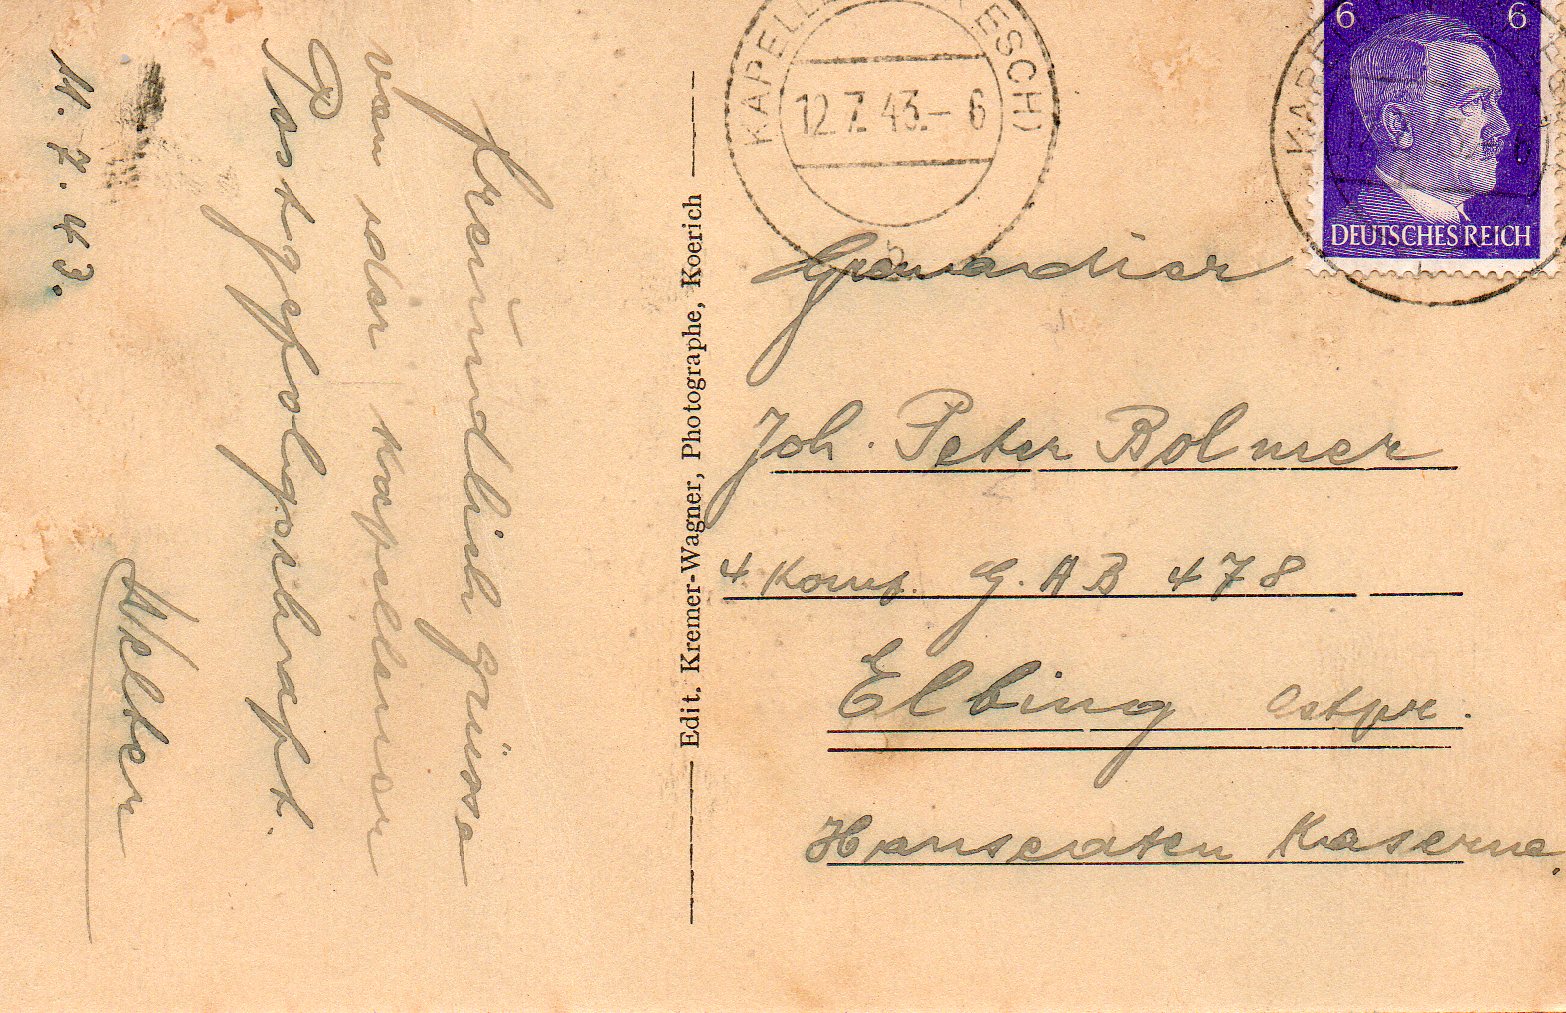 11. 7. 43.
Freündlich grüsse
von der Kapellener
Postgefolgschaft.
Welter
Edit. Kremer-Wagner, Photographe, Koerich
KAPELLE ESCH)
12.7.43.- 6
b
6 6
DEUTSCHES REICH
Grenadier
Joh. Peter Bolmer
4. Komp. G. A B 478
Elbing Ostpr.
Hanseaten Kaserne.